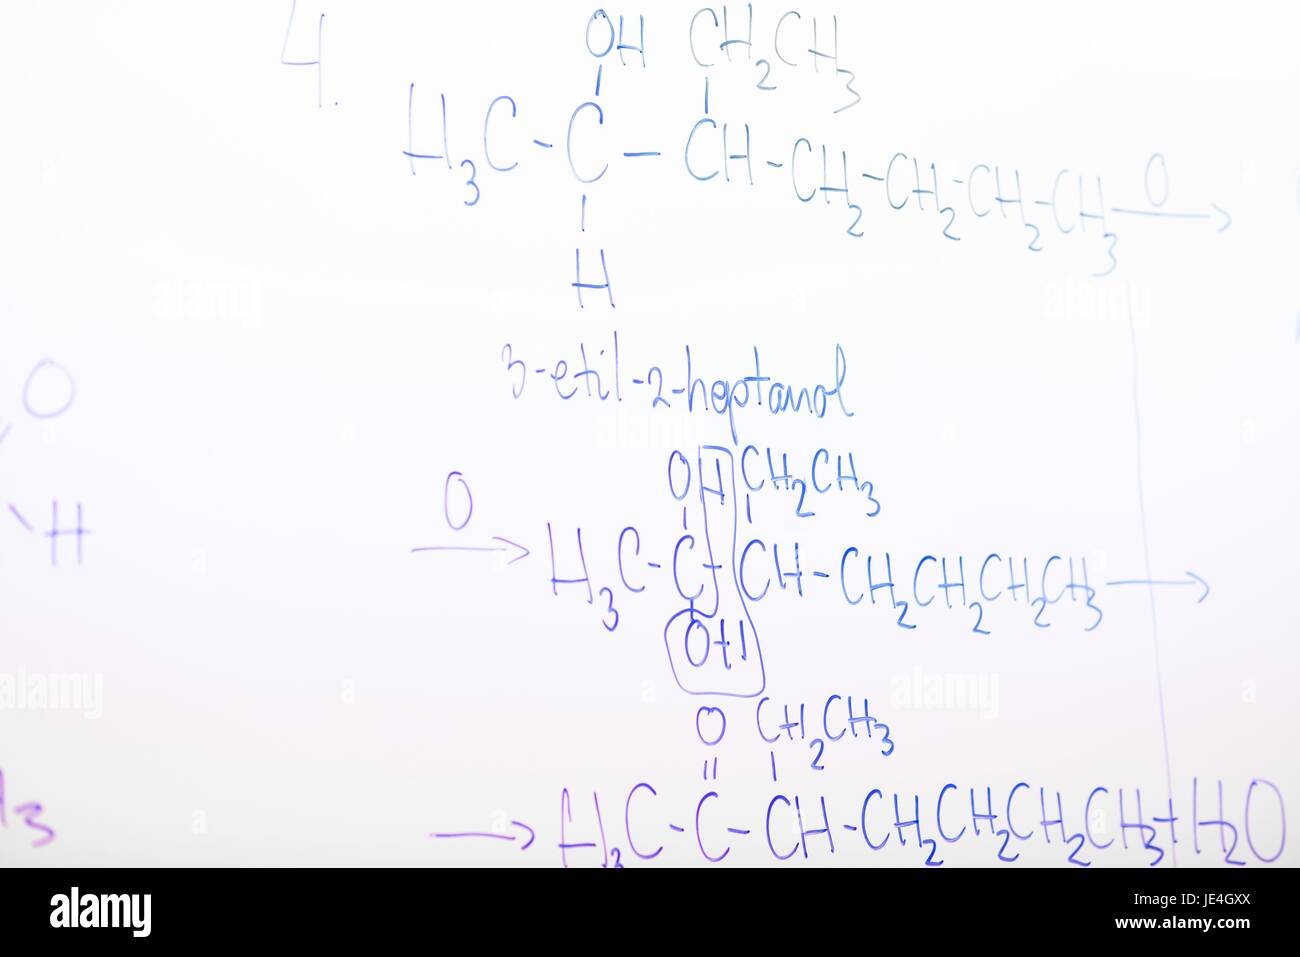 4.
OH CH2CH3
H3C - C - CH - CH2 - CH2 - CH2 - CH3 O →
H
3-etil-2-heptanol
O
H
OH CH2CH3
O → H3C - C - CH - CH2CH2CH2CH3 →
OH
O CH2CH3
→ H3C - C - CH - CH2CH2CH2CH3 + H2O
3
alamy
Image ID: JE4GXX
www.alamy.com